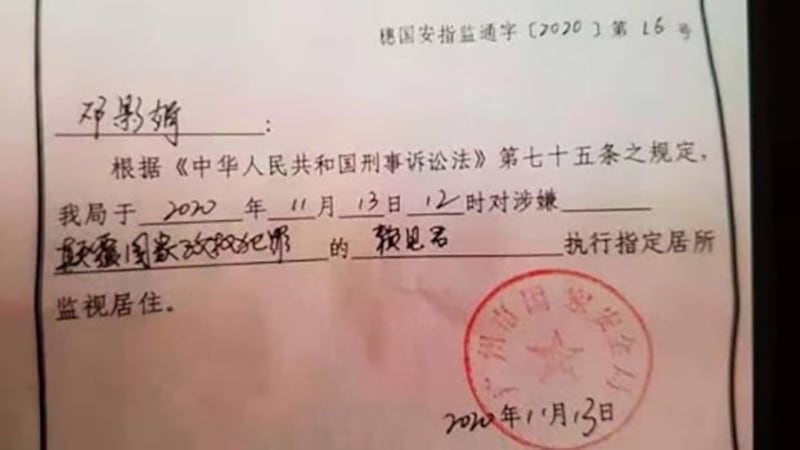 穗国安指监通字〔2020〕第 16 号
邓影 :
根据《中华人民共和国刑事诉讼法》第七十五条之规定,
我局于 2020 年 11 月 13 日 12 时对涉嫌
颠覆国家政权犯罪 的 赖见君 执行指定居所
监视居住。
广州市国家安全局
2020年11月13日